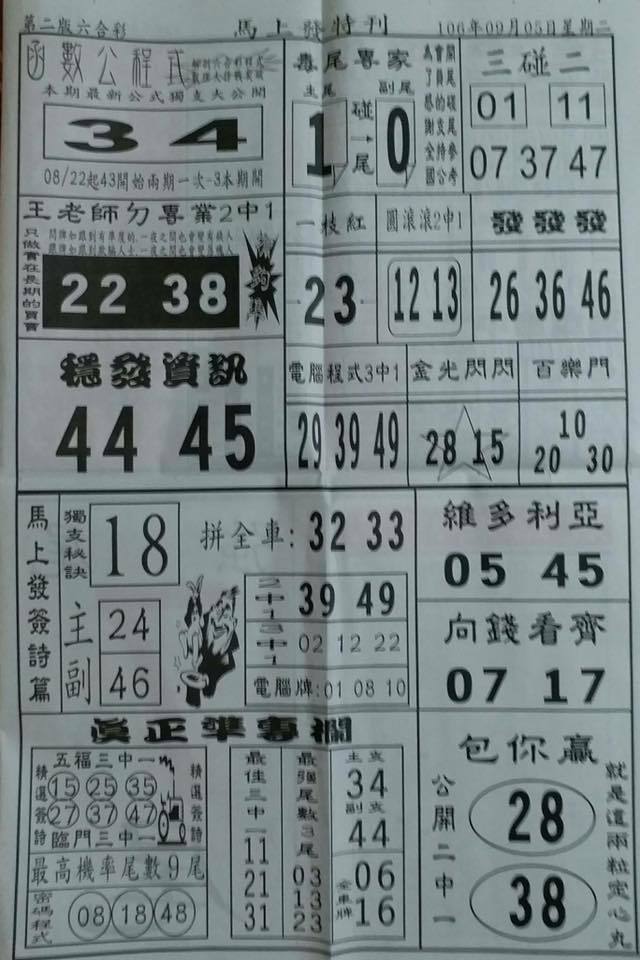 第二版六合彩
馬上發特刊
106年09月05日星期二
函數公程式
本期最新公式獨支夫公開
34
08/22起43開始兩期一次-3本期開
毒尾專家
主尾 副尾
1 碰一尾 0
三碰二
01 11
07 37 47
王老師勿專業2中1
只做實在長期的買賣
22 38
一枝紅
23
圓滾滾2中1
12 13
發發發
26 36 46
穩發資訊
44 45
電腦程式3中1
29 39 49
金光閃閃
28 15
百樂門
10
20 30
馬上發簽詩篇
獨支秘訣
18
拼全車: 32 33
主 24
副 46
2中1 39 49
3中1 02 12 22
電腦牌:01 08 10
維多利亞
05 45
向錢看齊
07 17
真正準專欄
五福三中一
精選簽詩
15 25 35
27 37 47
精選簽詩
臨門三中一
最高機率尾數9尾
密碼程式
08 18 48
最佳三中一
11
21
31
最強尾數3尾
03
13
23
主支
34
副支
44
全車牌
06
16
包你贏
公開二中一
28
38
就是這兩粒定心丸